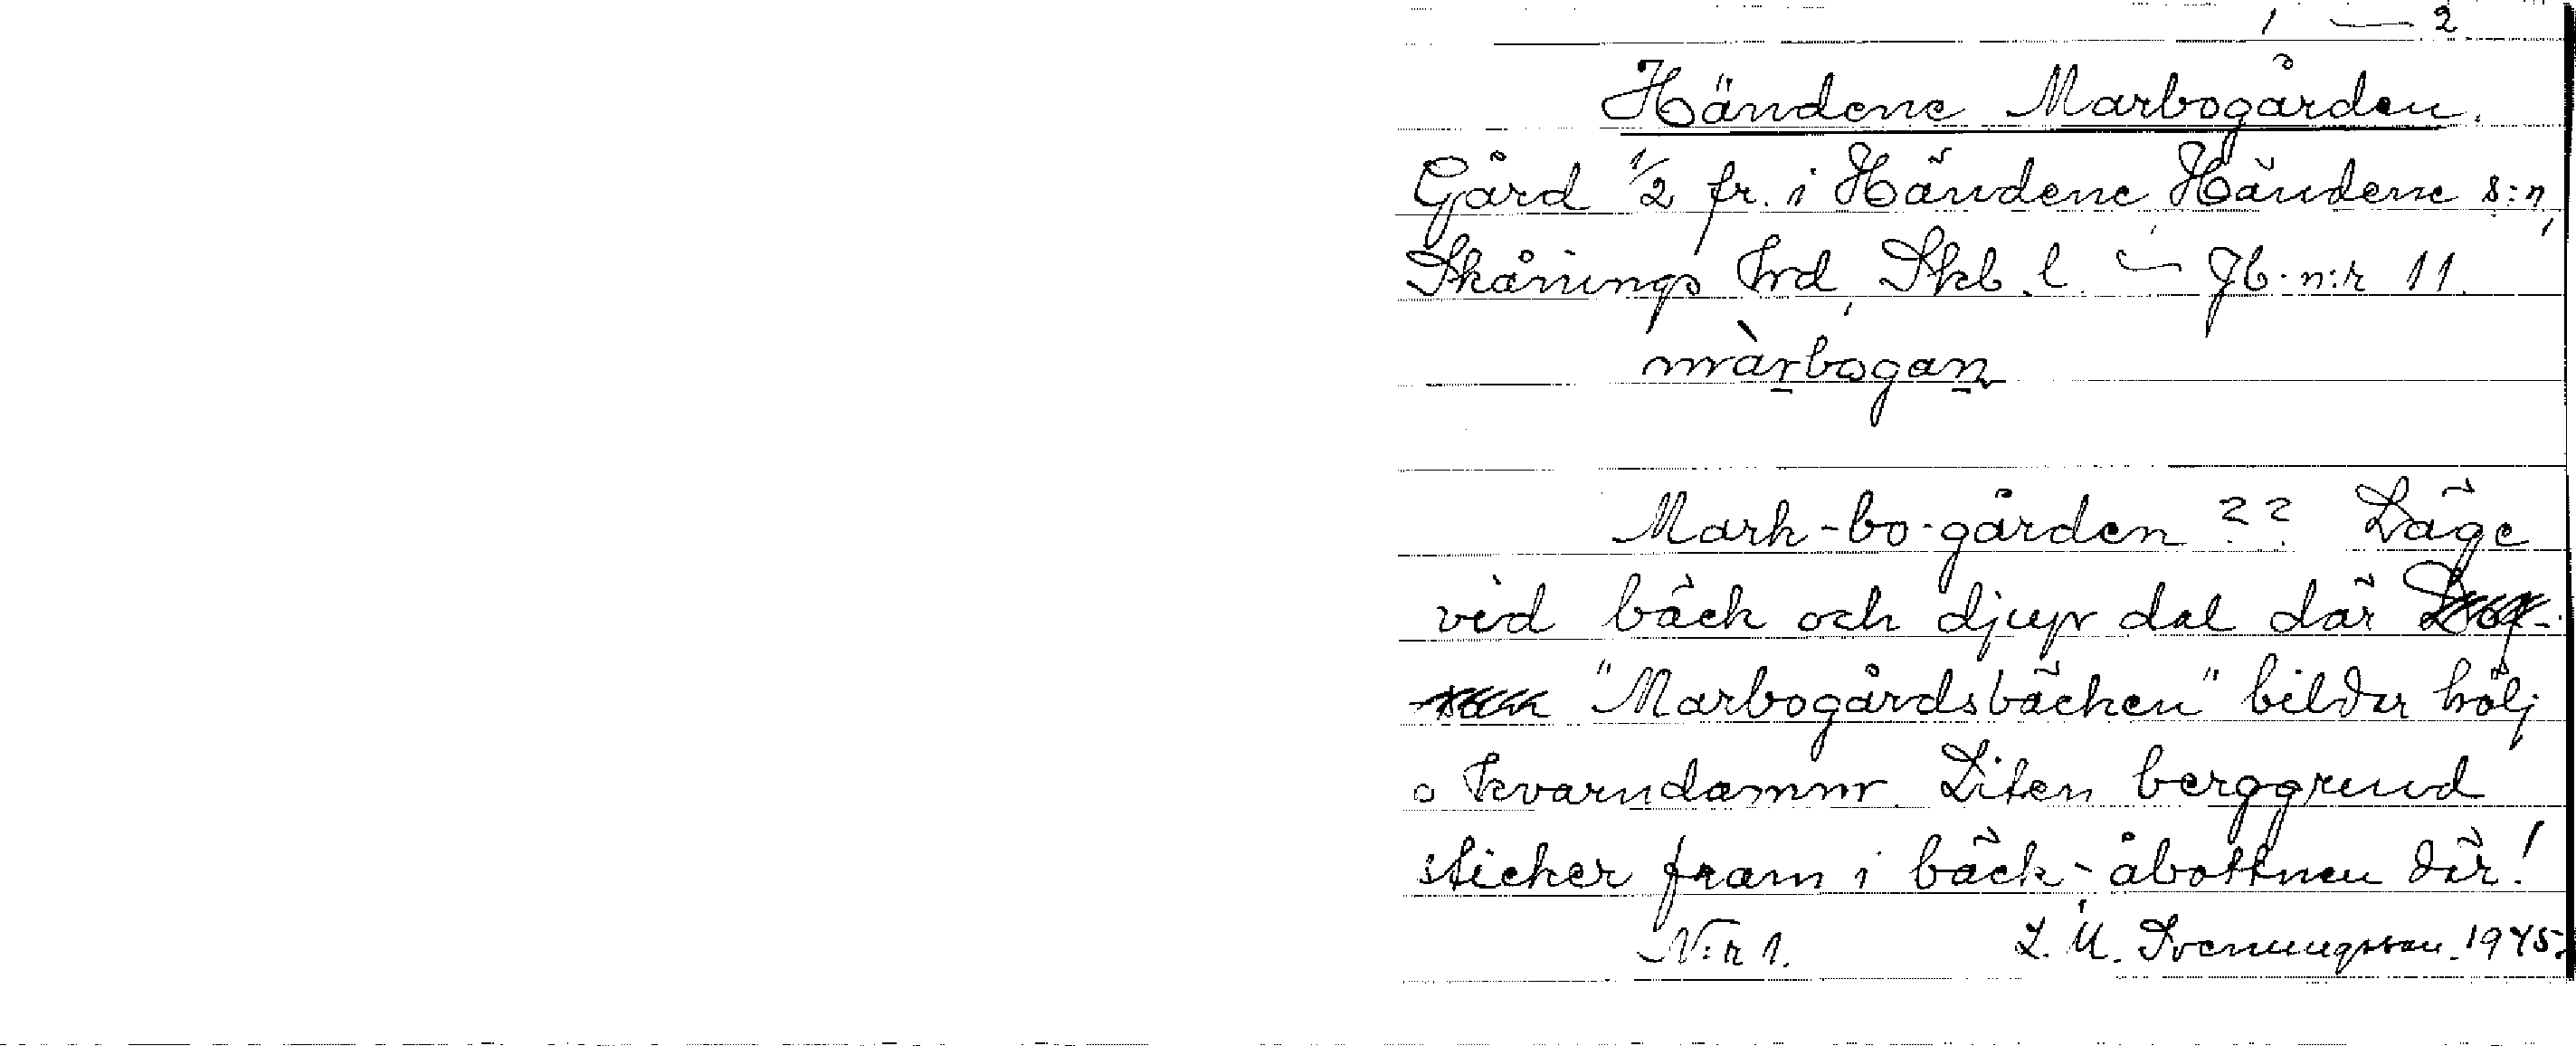 1 — 2
Händene Marbogården.
Gård 1/2 fr. i Händene, Händene s:n,
Skånings hrd, Skb. l. — Jb. n:r 11.
màrbogan
Mark-bo-gården?? Läge
vid bäck och djup dal där
"Marbogårdsbäcken" bildar hölj
o kvarndamm. Liten berggrund
sticker fram i bäck-åbottnen där!
N:r 1. L. U. Svenungsson. 1945.